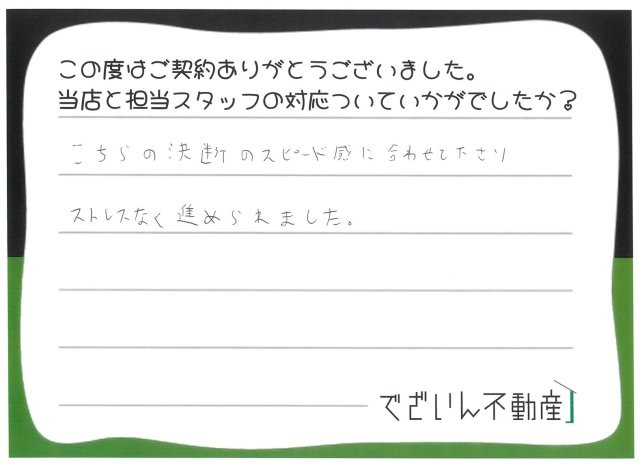 この度はご契約ありがとうございました。
当店と担当スタッフの対応ついていかがでしたか？
こちらの決断のスピード感に合わせて下さり
ストレスなく進められました。
でざいん不動産